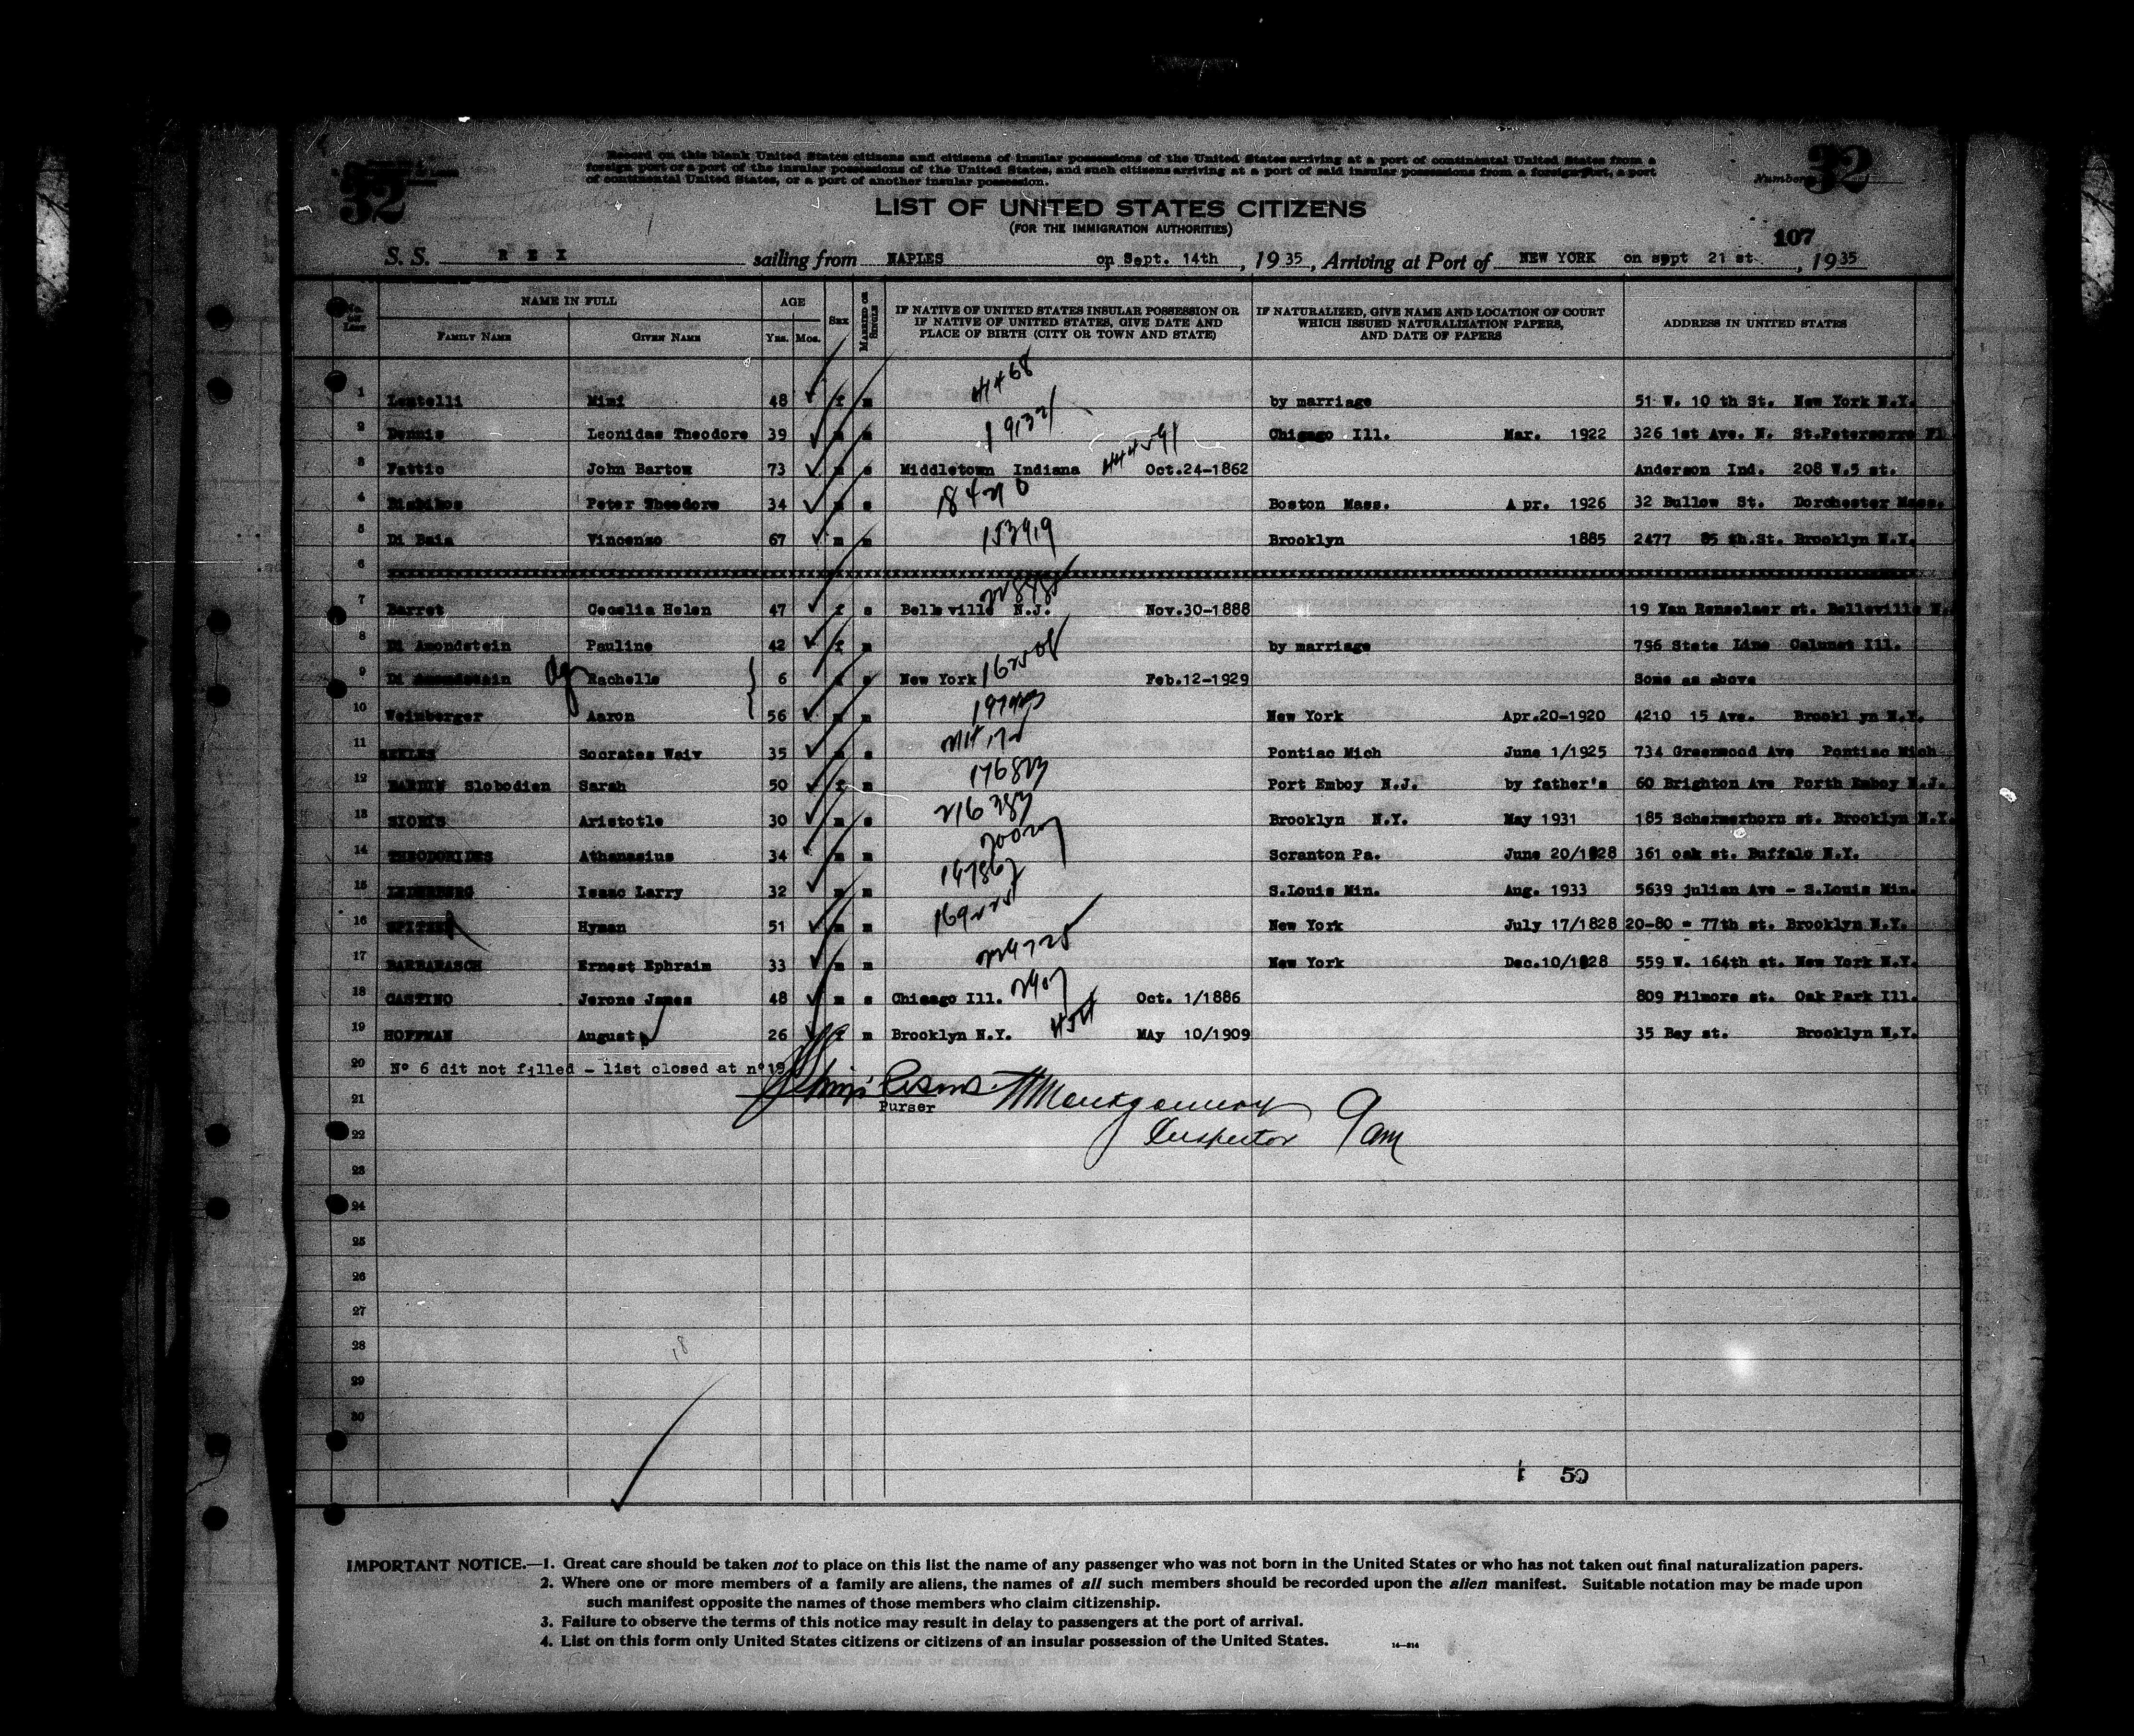 32
Record on this blank United States citizens and citizens of insular possessions of the United States arriving at a port of continental United States from a
foreign port or a port of the insular possessions of the United States, and such citizens arriving at a port of said insular possessions from a foreign port, a port
of continental United States, or a port of another insular possession.
Number 32
LIST OF UNITED STATES CITIZENS
(FOR THE IMMIGRATION AUTHORITIES)
107
S. S. REX sailing from NAPLES on Sept. 14th, 1935, Arriving at Port of NEW YORK on sept 21 st., 1935
No. on List
NAME IN FULL
FAMILY NAME GIVEN NAME
AGE
Yrs. Mos.
SEX
MARRIED OR SINGLE
IF NATIVE OF UNITED STATES INSULAR POSSESSION OR
IF NATIVE OF UNITED STATES, GIVE DATE AND
PLACE OF BIRTH (CITY OR TOWN AND STATE)
IF NATURALIZED, GIVE NAME AND LOCATION OF COURT
WHICH ISSUED NATURALIZATION PAPERS,
AND DATE OF PAPERS
ADDRESS IN UNITED STATES
1 Lentelli Mimi 48 f m by marriage 51 W. 10 th St. New York N.Y.
2 Dennis Leonidas Theodore 39 m m Chicago Ill. Mar. 1922 326 1st Ave. N.
3 Pattic John Bartow 73 m s Middletown Indiana Oct.24-1862 Anderson Ind. 208 W.5 st.
4 Peter Theodore 34 m s 18421 0 Boston Mass. Apr. 1926 32 Bullow St. Dorchester Mass.
5 Di Baia Vincenzo 67 m m 153919 Brooklyn 1885 2477 85 th.St. Brooklyn N.Y.
6 xxxxxxxxxxxxxxxxxxxxxxxxxxxxxxxxxxxxxxxxxxxxxxxxxxxxxxxxxxxxxxxx
7 Barret Cecelia Helen 47 f s Belleville N.J. Nov.30-1888 19 Van Renselaer st. Belleville N.
8 Di Amondstein Pauline 42 f m by marriage 796 State Line Calumet Ill.
9 Di Amondstein Rachelle 6 f s New York Feb.12-1929 Some as above
10 Weinberger Aaron 56 m m New York Apr.20-1920 4210 15 Ave. Brookl yn N.Y.
11 Socrates Waiv 35 m s Pontiac Mich June 1/1925 734 Greenwood Ave Pontiac Mich
12 BARDIN Slobodien Sarah 50 f m Port Emboy N.J. by father's 60 Brighton Ave Porth Emboy N.J.
13 SIORIS Aristotle 30 m s 216383 Brooklyn N.Y. May 1931 185 Schermerhorn st. Brooklyn N.Y.
14 THEODORIDES Athanasius 34 m m Scranton Pa. June 20/1928 361 oak st. Buffalo N.Y.
15 Isaac Larry 32 m m S.Louis Min. Aug. 1933 5639 julian Ave - S.Louis Min.
16 SPITZER Hyman 51 m m New York July 17/1828 20-80 = 77th st. Brooklyn N.Y.
17 BARBARASCH Ernest Ephraim 33 m m New York Dec.10/1928 559 W. 164th st. New York N.Y.
18 CASTINO Jerone James 48 m s Chicago Ill. Oct. 1/1886 809 Filmore st. Oak Park Ill.
19 HOFFMAN August 26 f m Brooklyn N.Y. MAy 10/1909 35 Bay st. Brooklyn N.Y.
20 Nº 6 dit not filled - list closed at nº19
21 Purser Montgomery
22 Inspector 9 am
23
24
25
26
27
28
29
30
18
50
IMPORTANT NOTICE.—1. Great care should be taken not to place on this list the name of any passenger who was not born in the United States or who has not taken out final naturalization papers.
2. Where one or more members of a family are aliens, the names of all such members should be recorded upon the alien manifest. Suitable notation may be made upon
such manifest opposite the names of those members who claim citizenship.
3. Failure to observe the terms of this notice may result in delay to passengers at the port of arrival.
4. List on this form only United States citizens or citizens of an insular possession of the United States.
14—814